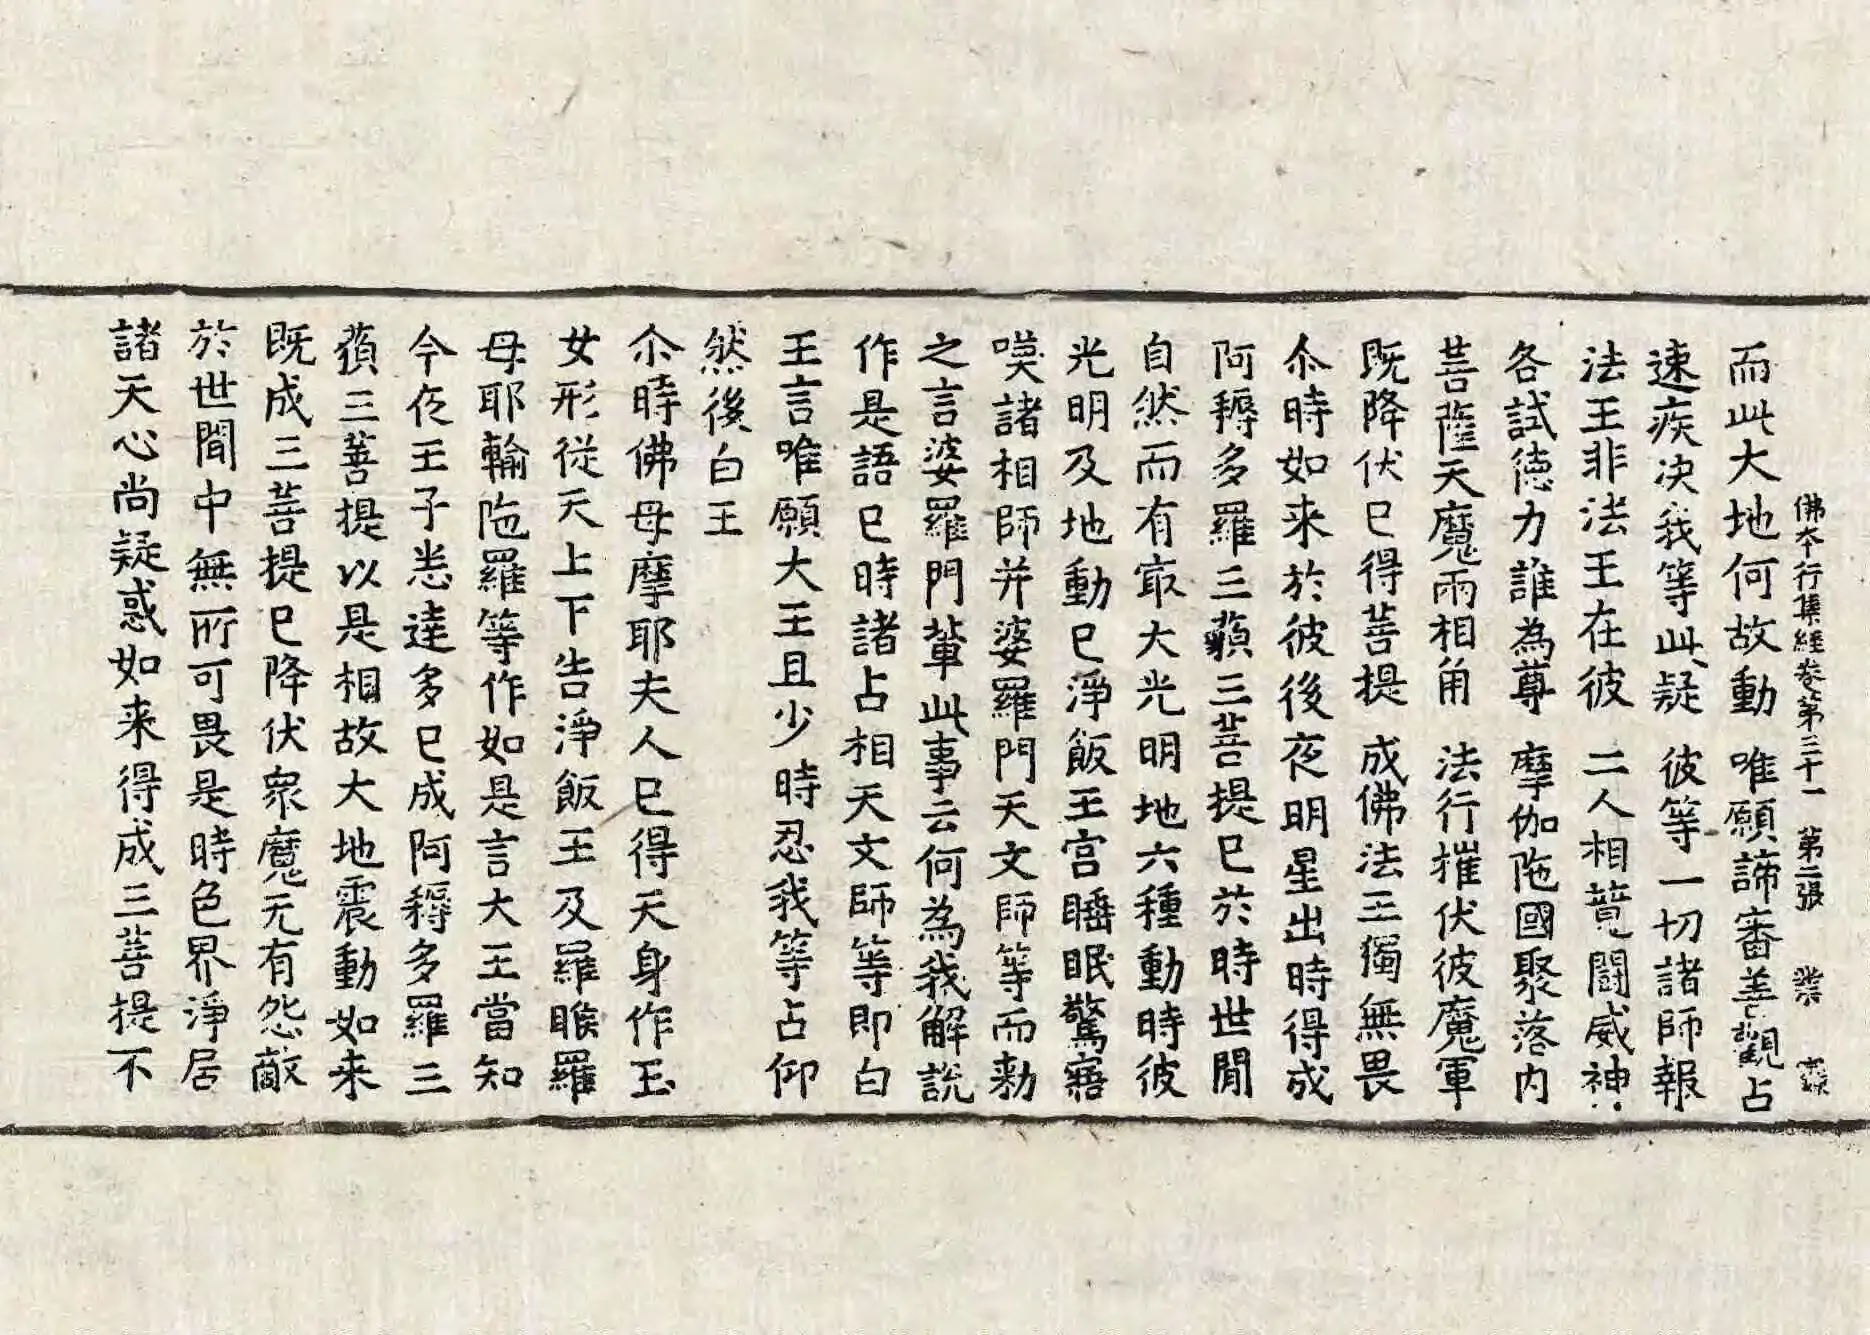 佛本行集經卷第三十一 第二張
而此大地何故動 唯願諦審善觀占
速疾决我等此疑 彼等一切諸師報
法王非法王在彼 二人相競鬪威神
各試徳力誰為尊 摩伽陁國聚落内
菩薩天魔兩相角 法行摧伏彼魔軍
既降伏已得菩提 成佛法王獨無畏
尒時如来於彼後夜明星出時得成
阿耨多羅三藐三菩提已於時世間
自然而有㝡大光明地六種動時彼
光明及地動已淨飯王宫睡眠驚寤
喚諸相師并婆羅門天文師等而勑
之言婆羅門輩此事云何為我解說
作是語已時諸占相天文師等即白
王言唯願大王且少時忍我等占仰
然後白王
尒時佛母摩耶夫人已得天身作玉
女形従天上下告淨飯王及羅睺羅
母耶輸陁羅等作如是言大王當知
今夜王子悉達多已成阿耨多羅三
藐三菩提以是相故大地震動如来
既成三菩提已降伏衆魔无有怨敵
於世間中無所可畏是時色界淨居
諸天心尚疑惑如来得成三菩提不